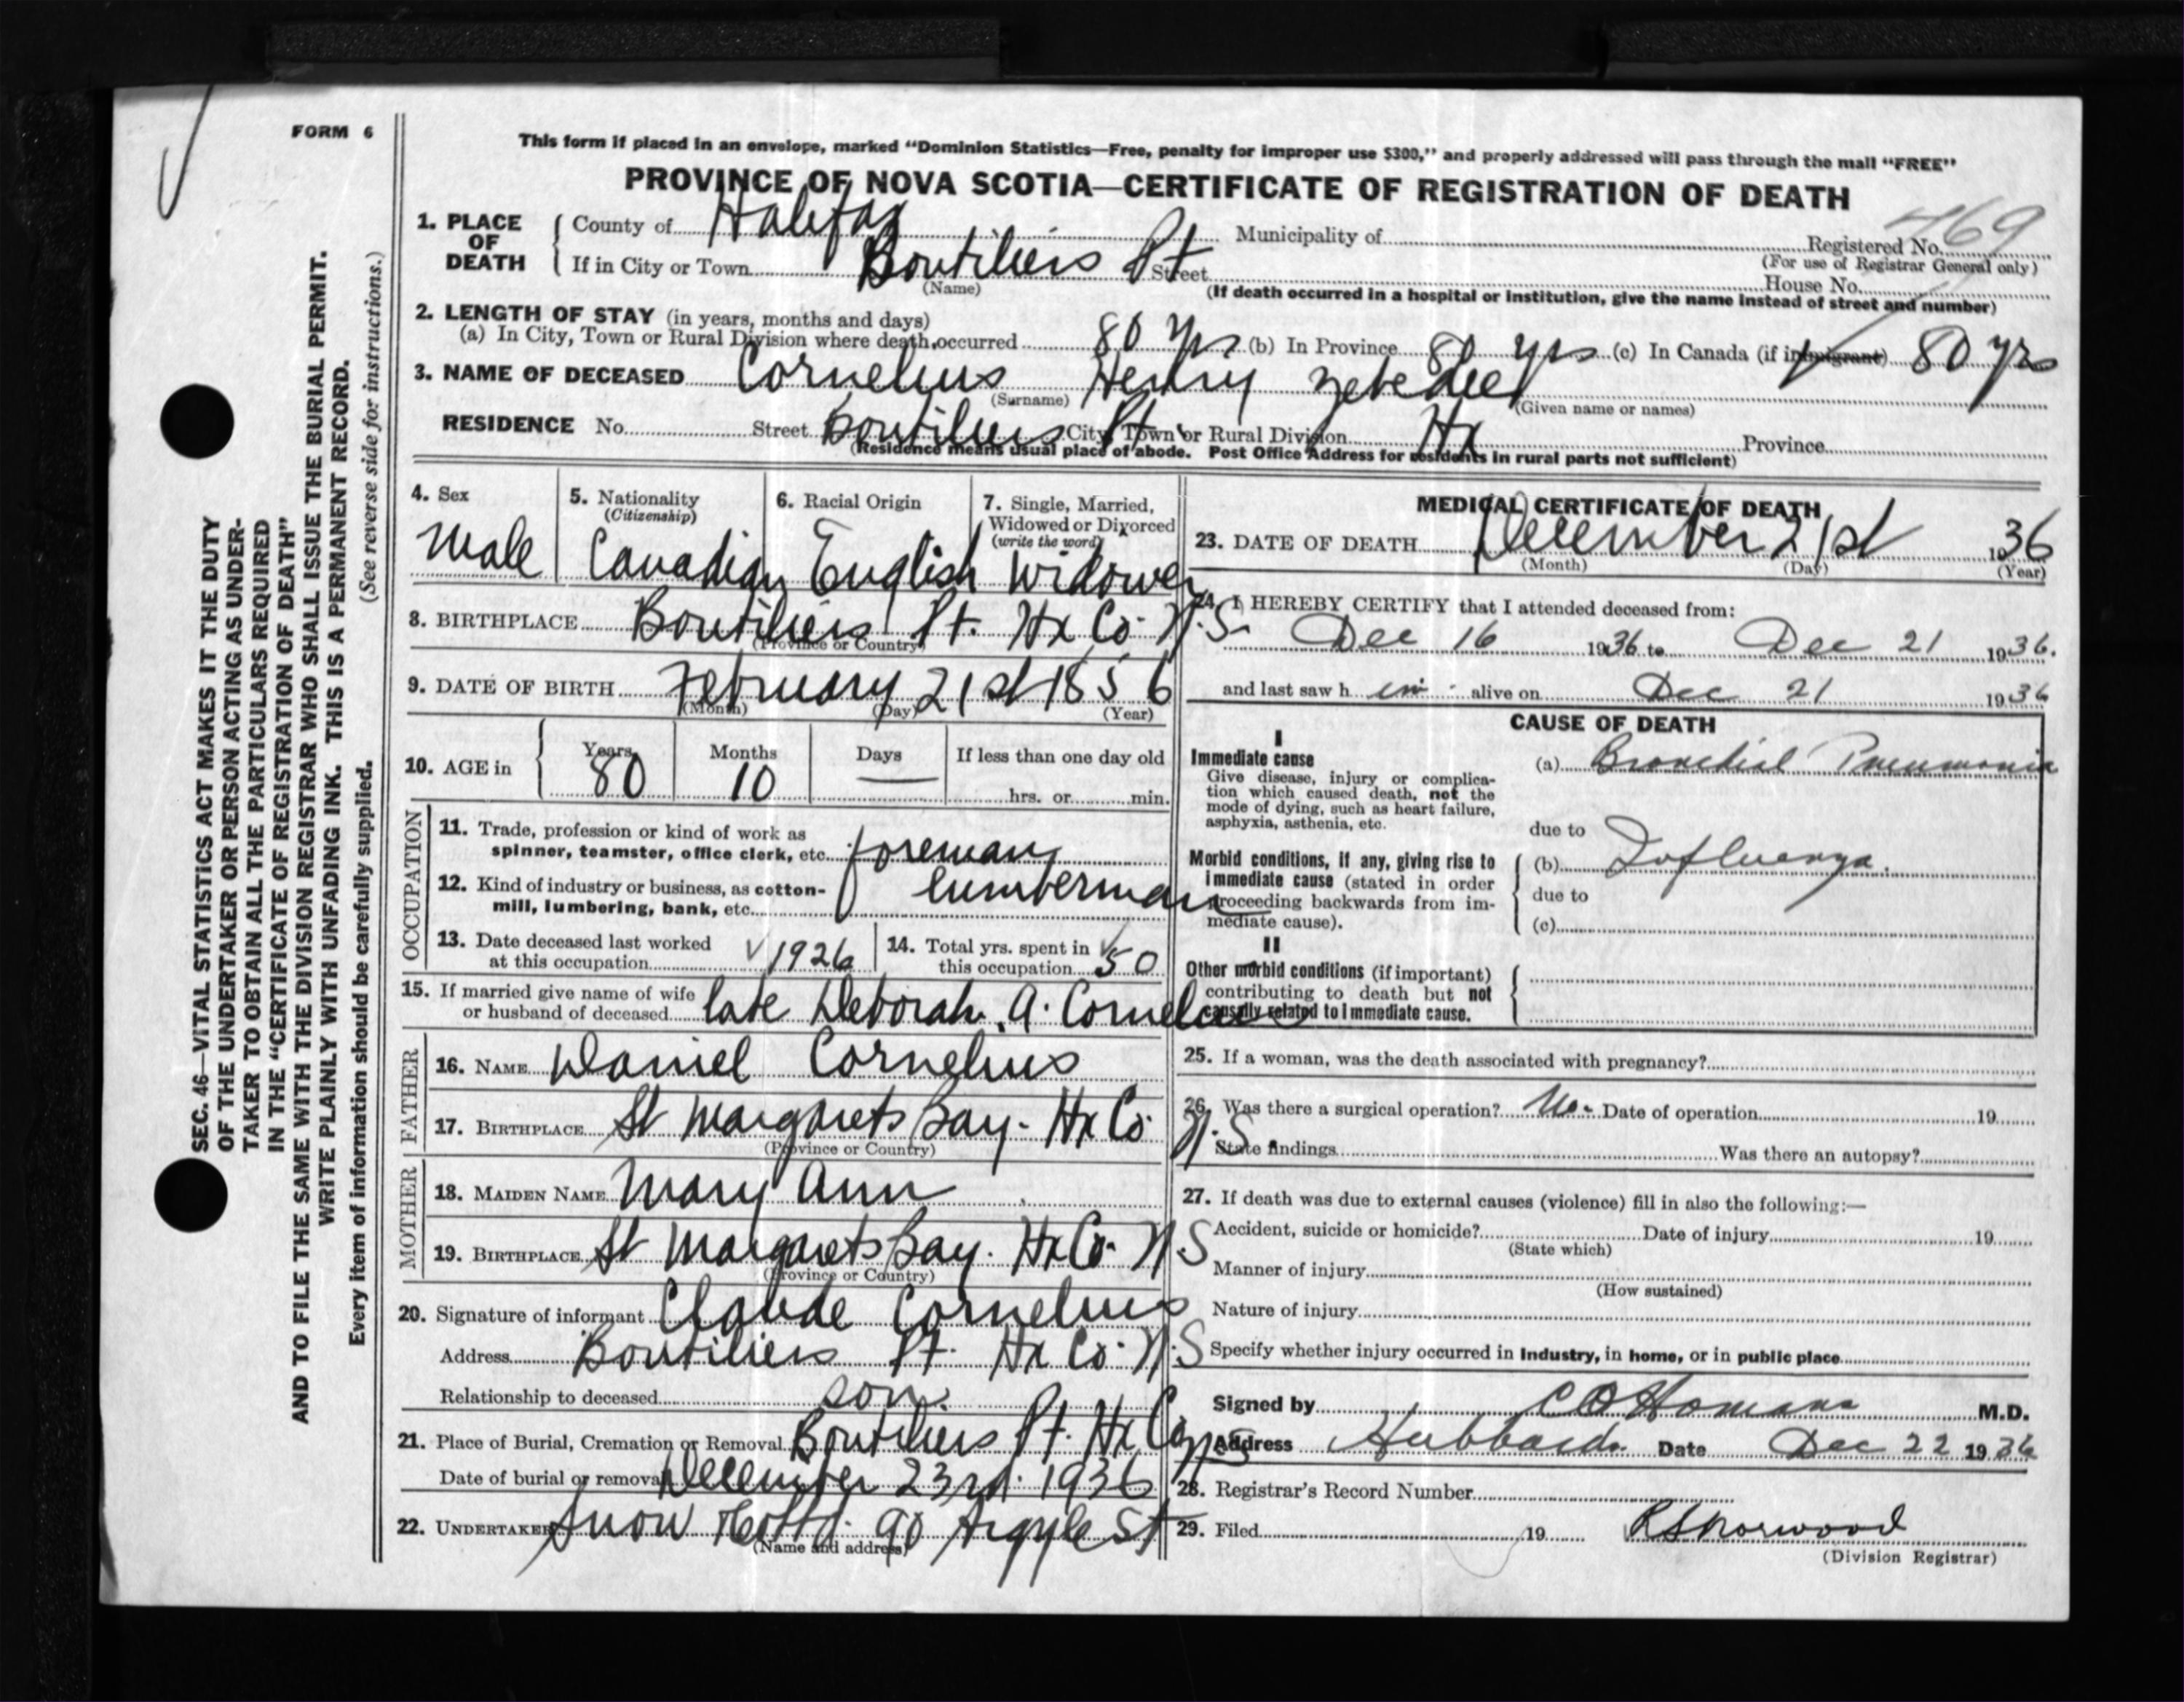 FORM 6
This form if placed in an envelope, marked "Dominion Statistics—Free, penalty for improper use $300," and properly addressed will pass through the mail "FREE"
PROVINCE OF NOVA SCOTIA—CERTIFICATE OF REGISTRATION OF DEATH
1. PLACE OF DEATH
County of Halifax Municipality of Registered No. 469
(For use of Registrar General only)
If in City or Town Boutiliers Pt Street House No.
(Name) (If death occurred in a hospital or institution, give the name instead of street and number)
2. LENGTH OF STAY (in years, months and days)
(a) In City, Town or Rural Division where death occurred 80 yrs (b) In Province 80 yrs (c) In Canada (if immigrant) 80 yrs
3. NAME OF DECEASED Cornelius Henry Zebedee
(Surname) (Given name or names)
RESIDENCE No. Street Boutiliers Pt City, Town or Rural Division Hx Province
(Residence means usual place of abode. Post Office Address for residents in rural parts not sufficient)
4. Sex
Male
5. Nationality
(Citizenship)
Canadian
6. Racial Origin
English
7. Single, Married,
Widowed or Divorced
(write the word)
Widower
8. BIRTHPLACE Boutiliers Pt. Hx Co. N.S.
(Province or Country)
9. DATE OF BIRTH February 21st 1856
(Month) (Day) (Year)
10. AGE in
Years Months Days If less than one day old
80 10 — hrs. or min.
OCCUPATION
11. Trade, profession or kind of work as
spinner, teamster, office clerk, etc. foreman
12. Kind of industry or business, as cotton-
mill, lumbering, bank, etc. lumberman
13. Date deceased last worked
at this occupation 1926
14. Total yrs. spent in
this occupation 50
15. If married give name of wife
or husband of deceased late Deborah. A. Cornelius
FATHER
16. NAME Daniel Cornelius
17. BIRTHPLACE St Margarets Bay. Hx Co. N.S
(Province or Country)
MOTHER
18. MAIDEN NAME Mary Ann
19. BIRTHPLACE St Margarets Bay. Hx Co. N.S
(Province or Country)
20. Signature of informant Claude Cornelius
Address Boutiliers Pt. Hx Co. N.S
Relationship to deceased son.
21. Place of Burial, Cremation or Removal Boutiliers Pt. Hx Co NS
Date of burial or removal December 23rd. 1936
22. UNDERTAKER Snow & Co Ltd. 90 Argyle St
(Name and address)
MEDICAL CERTIFICATE OF DEATH
23. DATE OF DEATH December 21st 1936
(Month) (Day) (Year)
24. I HEREBY CERTIFY that I attended deceased from:
Dec 16 1936 to Dec 21 1936.
and last saw h im alive on Dec 21 1936
CAUSE OF DEATH
I
Immediate cause
Give disease, injury or complica-
tion which caused death, not the
mode of dying, such as heart failure,
asphyxia, asthenia, etc.
(a) Bronchial Pneumonia
due to
Morbid conditions, if any, giving rise to
immediate cause (stated in order
proceeding backwards from im-
mediate cause).
(b) Influenza.
due to
(c)
II
Other morbid conditions (if important)
contributing to death but not
causally related to immediate cause.
25. If a woman, was the death associated with pregnancy?
26. Was there a surgical operation? No. Date of operation 19
State findings Was there an autopsy?
27. If death was due to external causes (violence) fill in also the following:—
Accident, suicide or homicide? Date of injury 19
(State which)
Manner of injury
(How sustained)
Nature of injury
Specify whether injury occurred in Industry, in home, or in public place
Signed by C O Homans M.D.
Address Hubbards Date Dec 22 1936
28. Registrar's Record Number
29. Filed 19 R S Norwood
(Division Registrar)
SEC. 46—VITAL STATISTICS ACT MAKES IT THE DUTY
OF THE UNDERTAKER OR PERSON ACTING AS UNDER-
TAKER TO OBTAIN ALL THE PARTICULARS REQUIRED
IN THE "CERTIFICATE OF REGISTRATION OF DEATH"
AND TO FILE THE SAME WITH THE DIVISION REGISTRAR WHO SHALL ISSUE THE BURIAL PERMIT.
WRITE PLAINLY WITH UNFADING INK. THIS IS A PERMANENT RECORD.
Every item of information should be carefully supplied. (See reverse side for instructions.)